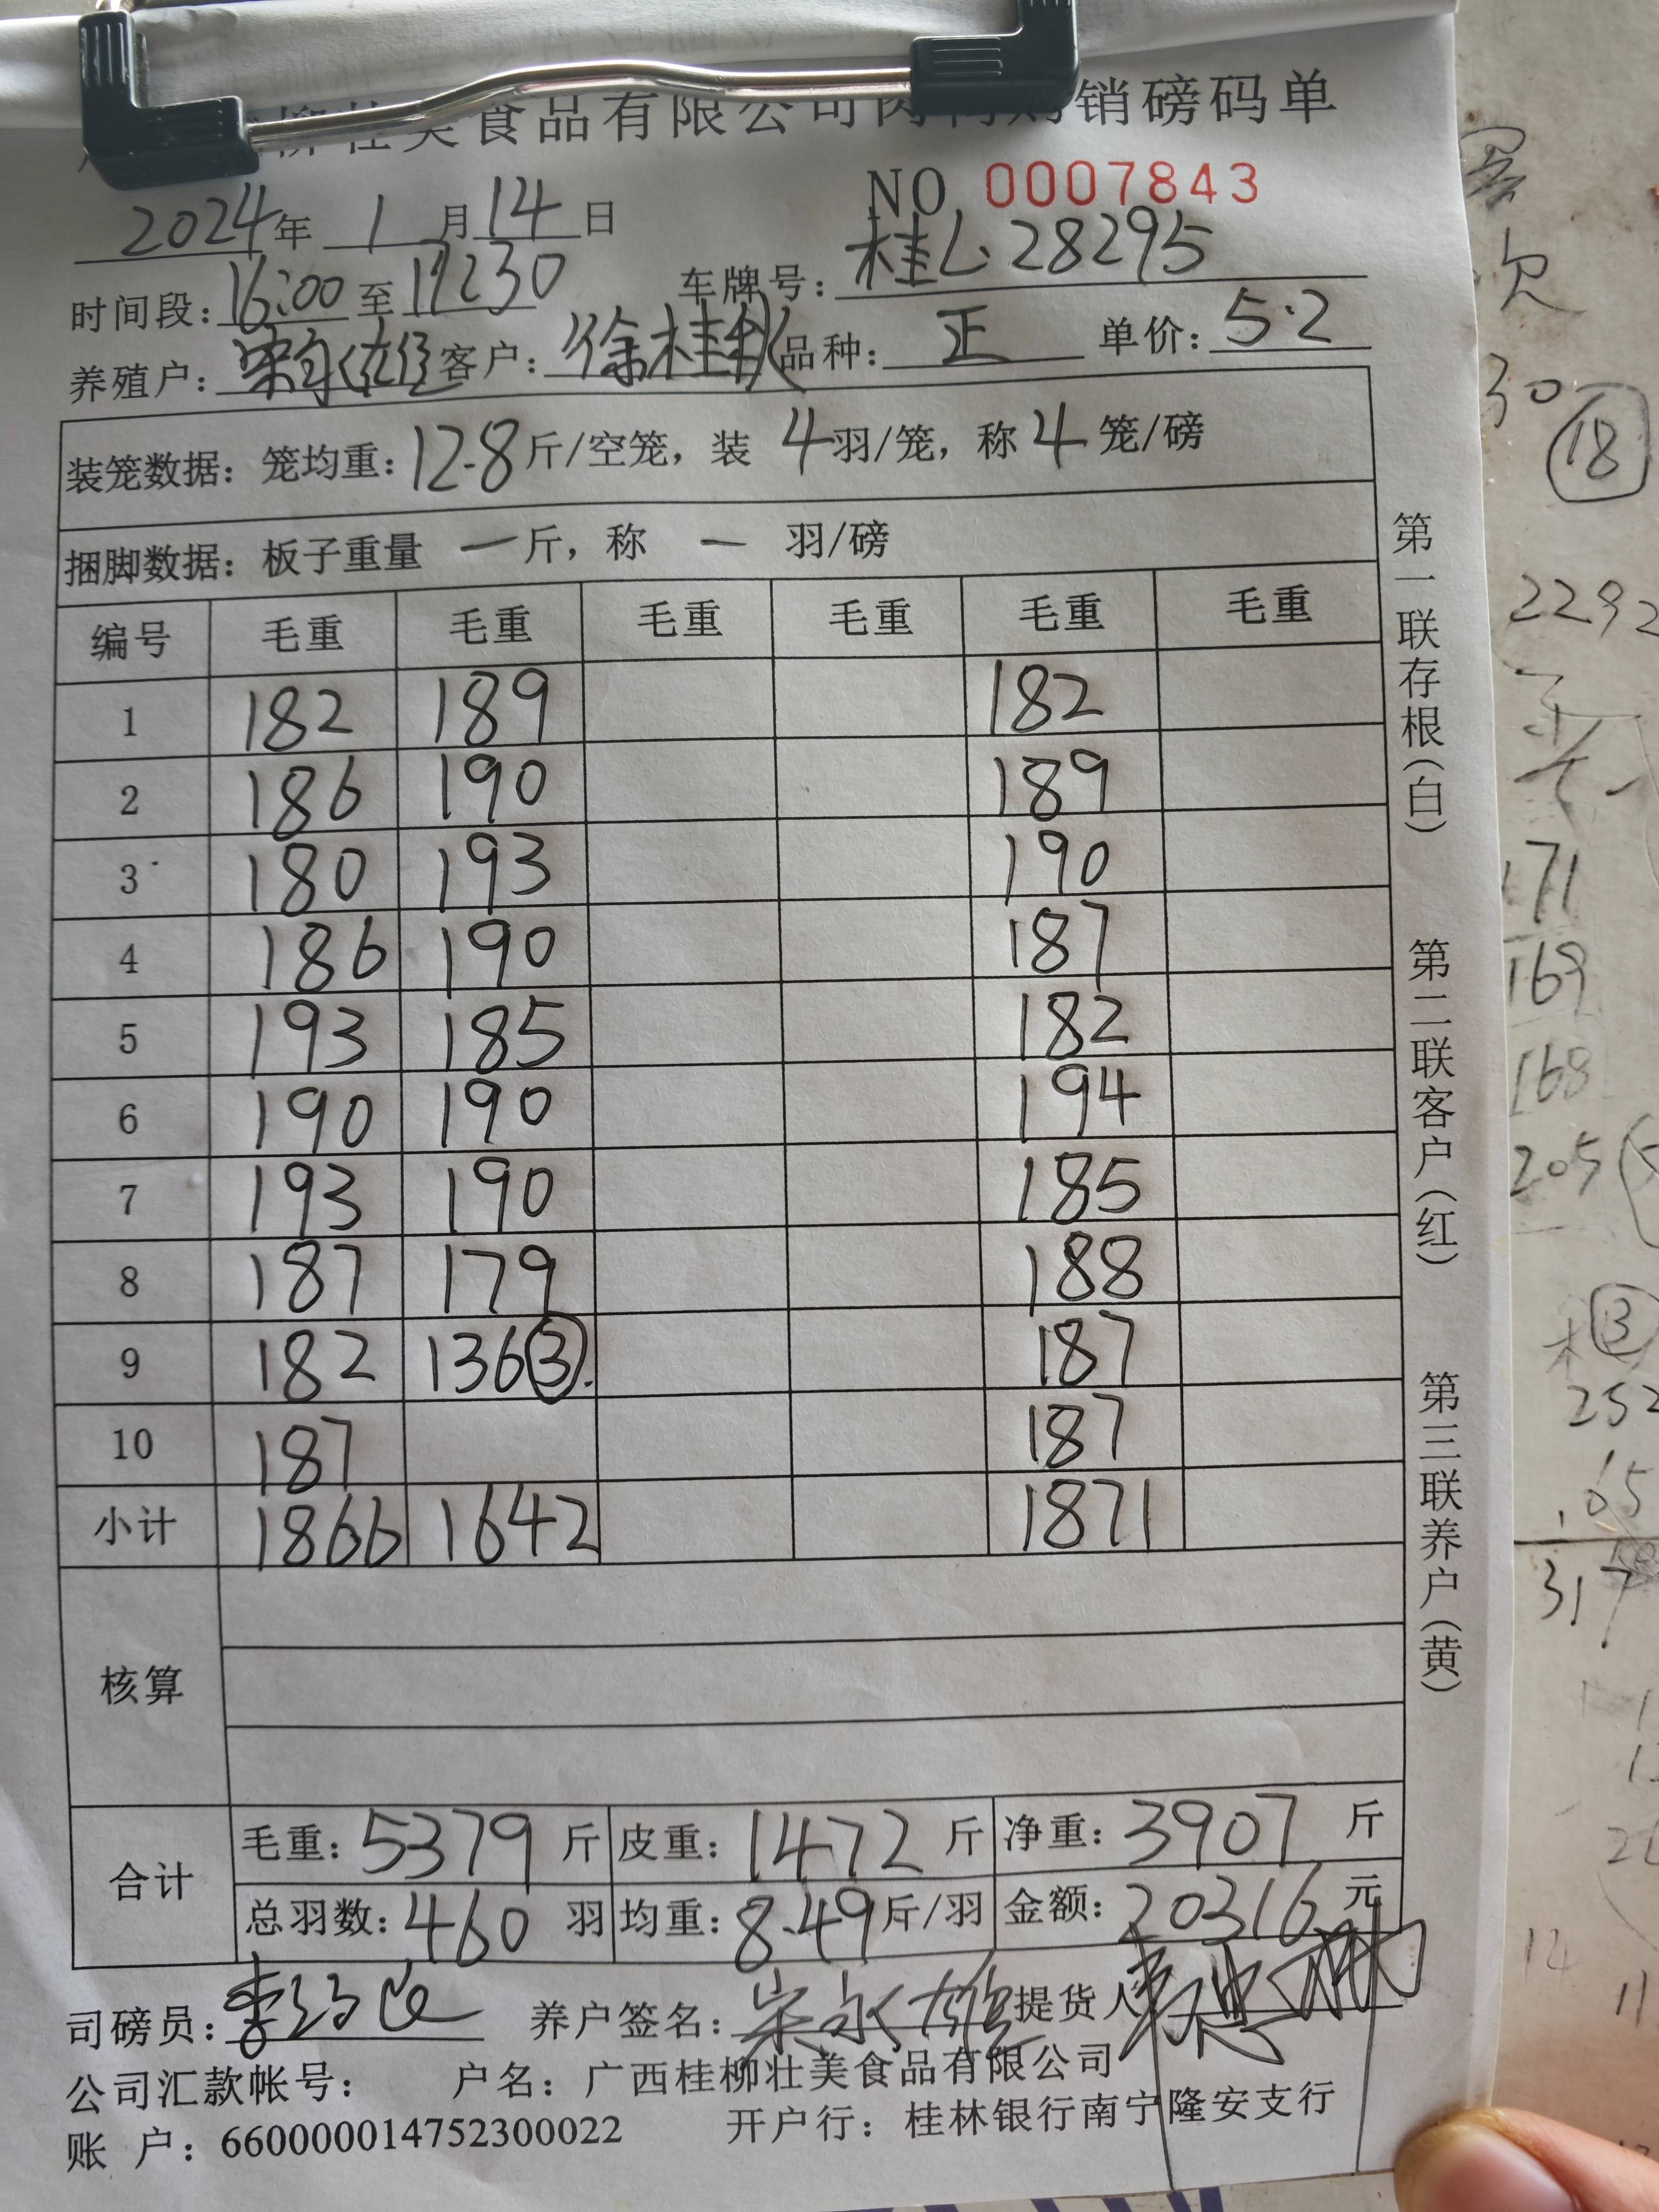 柳壮美食品有限公司肉 销磅码单
NO 0007843
2024年 1月14日
时间段：16:00至17:30 车牌号：桂L·28295
养殖户： 客户：徐桂秋 品种：正 单价：5.2
装笼数据：笼均重：12.8斤/空笼，装 4羽/笼，称 4 笼/磅
捆脚数据：板子重量 一斤，称 一 羽/磅
编号 毛重 毛重 毛重 毛重 毛重 毛重
1 182 189 182
2 186 190 189
3 180 193 190
4 186 190 187
5 193 185 182
6 190 190 194
7 193 190 185
8 187 179 188
9 182 136③. 187
10 187 187
小计 1866 1642 1871
核算
合计 毛重：5379 斤 皮重：1472 斤 净重：3907 斤
总羽数：460 羽 均重：8.49斤/羽 金额：20316元
司磅员： 养户签名：宋永雄 提货人
公司汇款帐号： 户名：广西桂柳壮美食品有限公司
账 户：660000014752300022 开户行：桂林银行南宁隆安支行
第一联存根（白）
第二联客户（红）
第三联养户（黄）
欠
30
⑱
2292
171
169
168
205
③
252
65
317
14
11